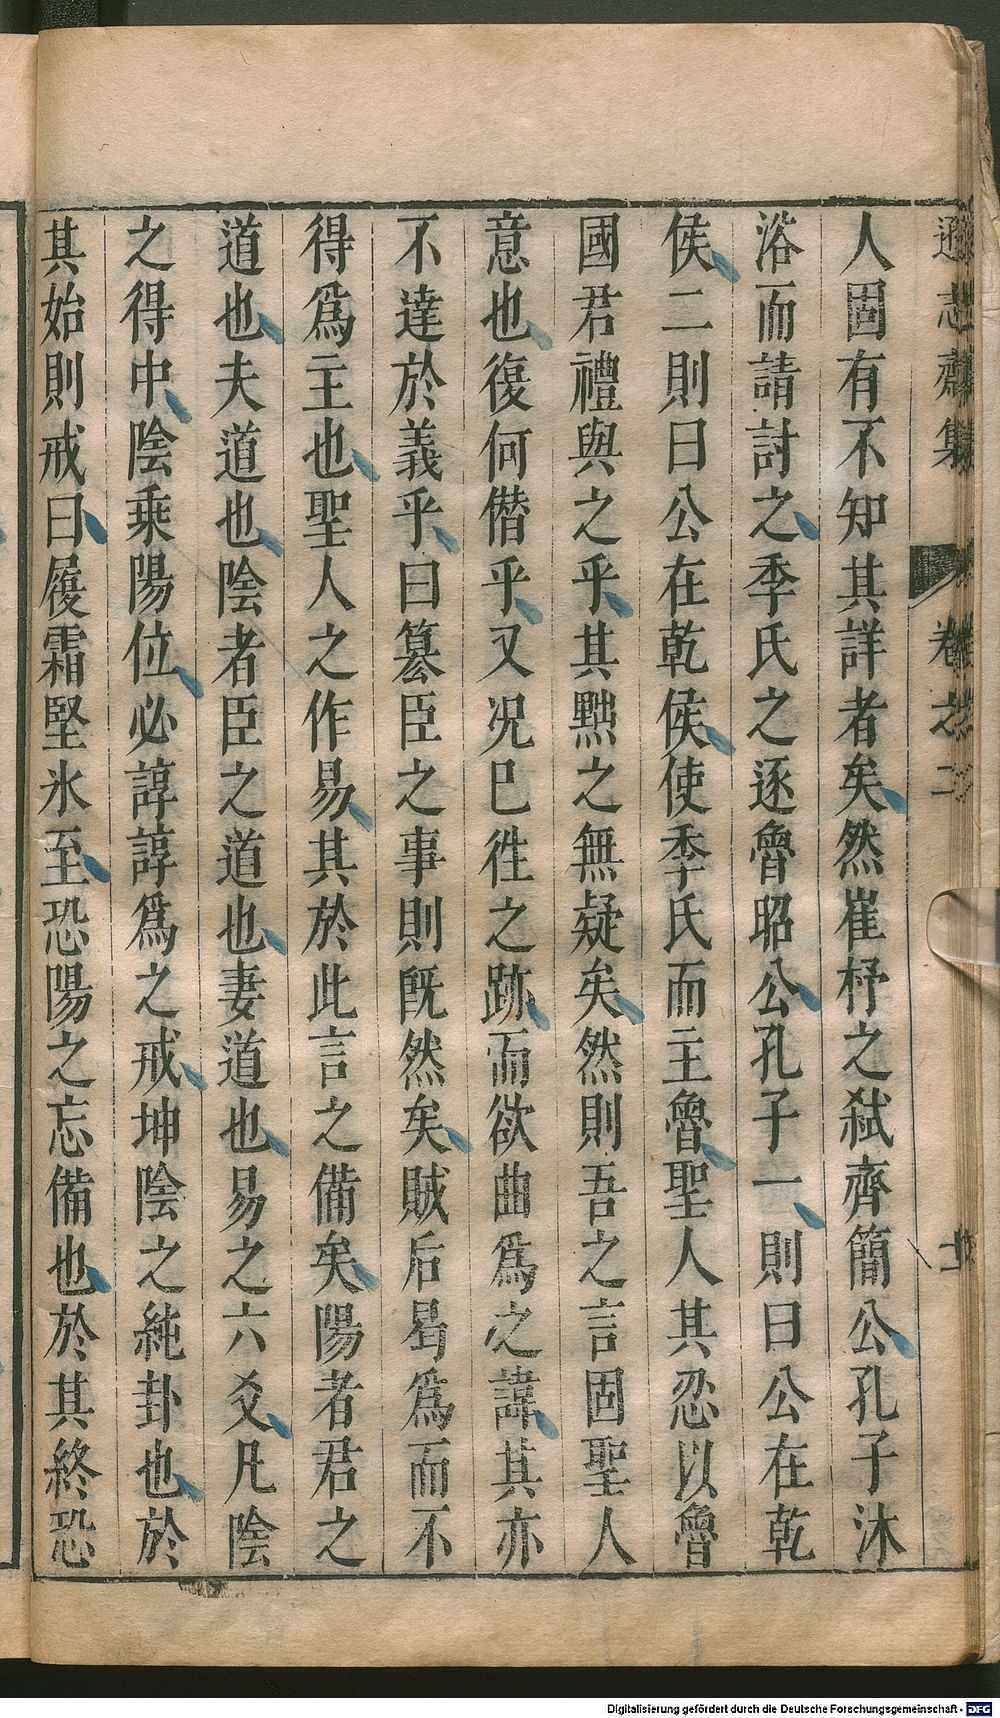 遜志齋集 卷之二
人固有不知其詳者矣然崔杼之弑齊簡公孔子沐
浴而請討之季氏之逐魯昭公孔子一則曰公在乾
侯二則曰公在乾侯使季氏而主魯聖人其忍以魯
國君禮與之乎其黜之無疑矣然則吾之言固聖人
意也復何僭乎又况已徃之跡而欲曲爲之諱其亦
不達於義乎曰簒臣之事則旣然矣賊后曷爲而不
得爲主也聖人之作易其於此言之備矣陽者君之
道也夫道也陰者臣之道也妻道也易之六爻凡陰
之得中陰乗陽位必諄諄爲之戒坤陰之純卦也於
其始則戒曰履霜堅氷至恐陽之忘備也於其終恐
Digitalisierung gefördert durch die Deutsche Forschungsgemeinschaft - DFG